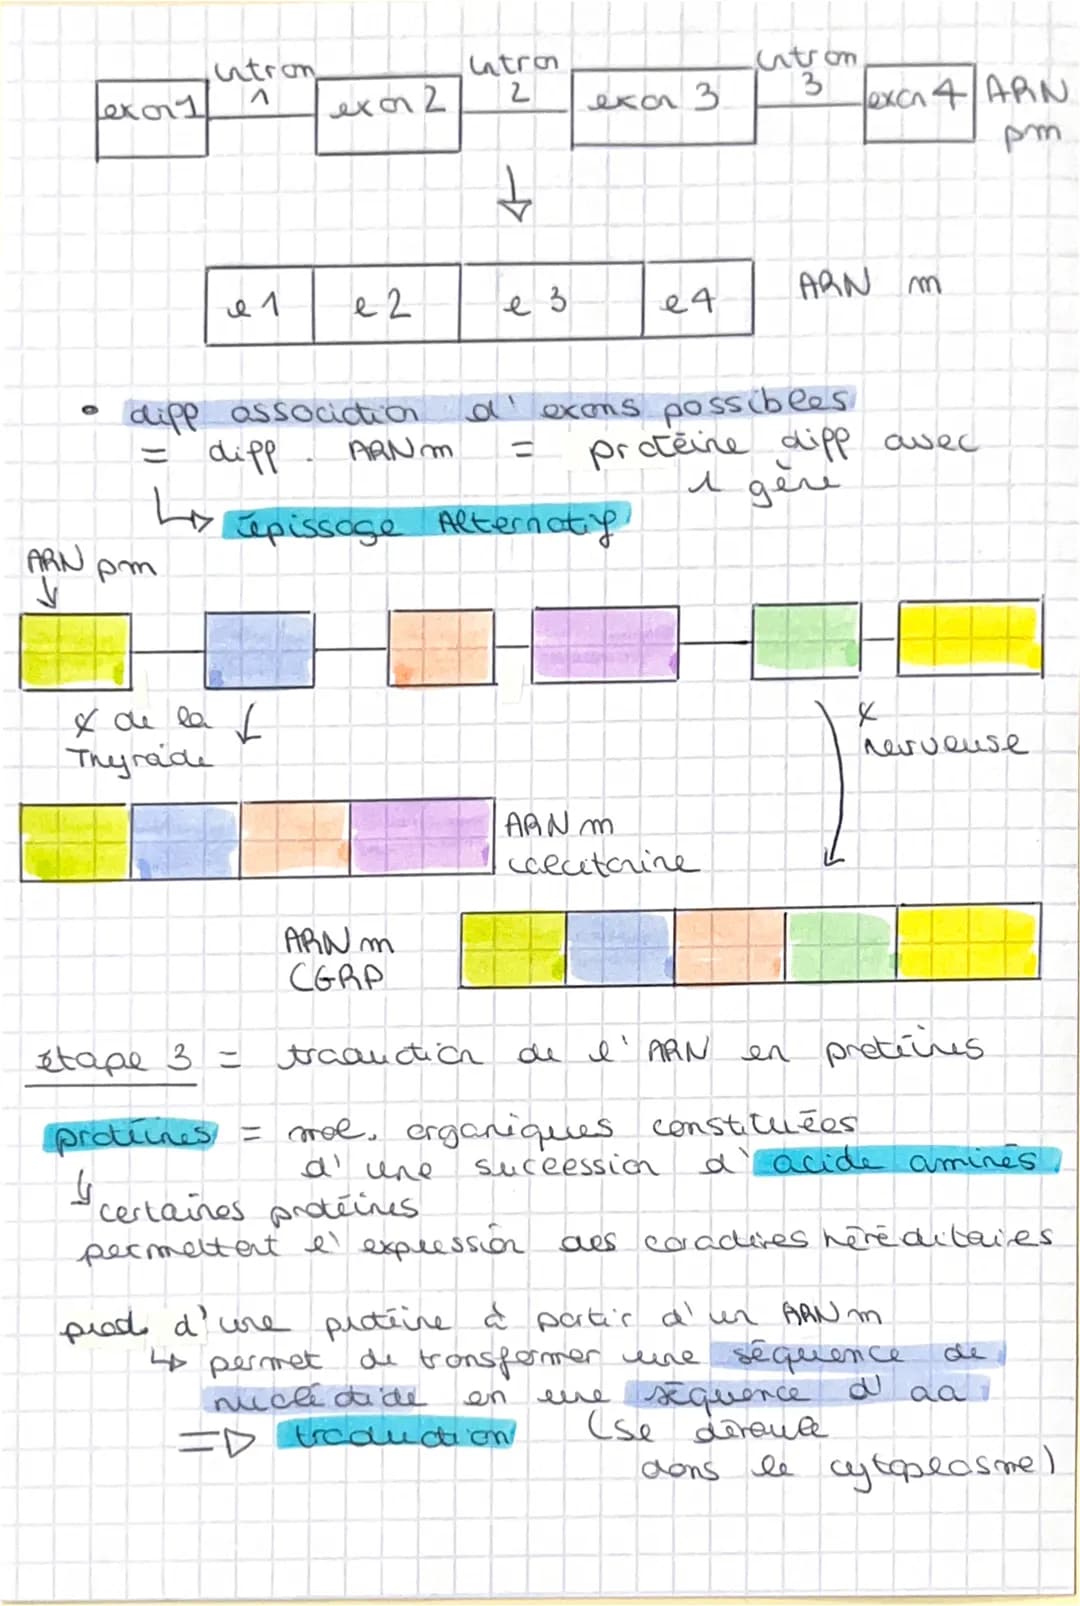 intron 1
intron 2
intron 3
exon 1
exon 2
exon 3
exon 4
ARN pm
e 1
e 2
e 3
e 4
ARN m
• diff association d' exons possibles
= diff. ARNm = protéine diff avec
1 gène
↳ épissage Alternatif
ARN pm
de la
Thyroïde
nerveuse
ARN m
calcitonine
ARN m
CGRP
étape 3 = traduction de l' ARN en protéines
protéines = mol. organiques constituées
d' une succession d' acide aminés
↳ certaines protéines
permettent l' expression des caractères héréditaires
prod. d'une protéine à partir d' un ARN m
↳ permet de transformer une séquence de
nucléotide en une séquence d' aa
=> traduction (se déroule
dans le cytoplasme)